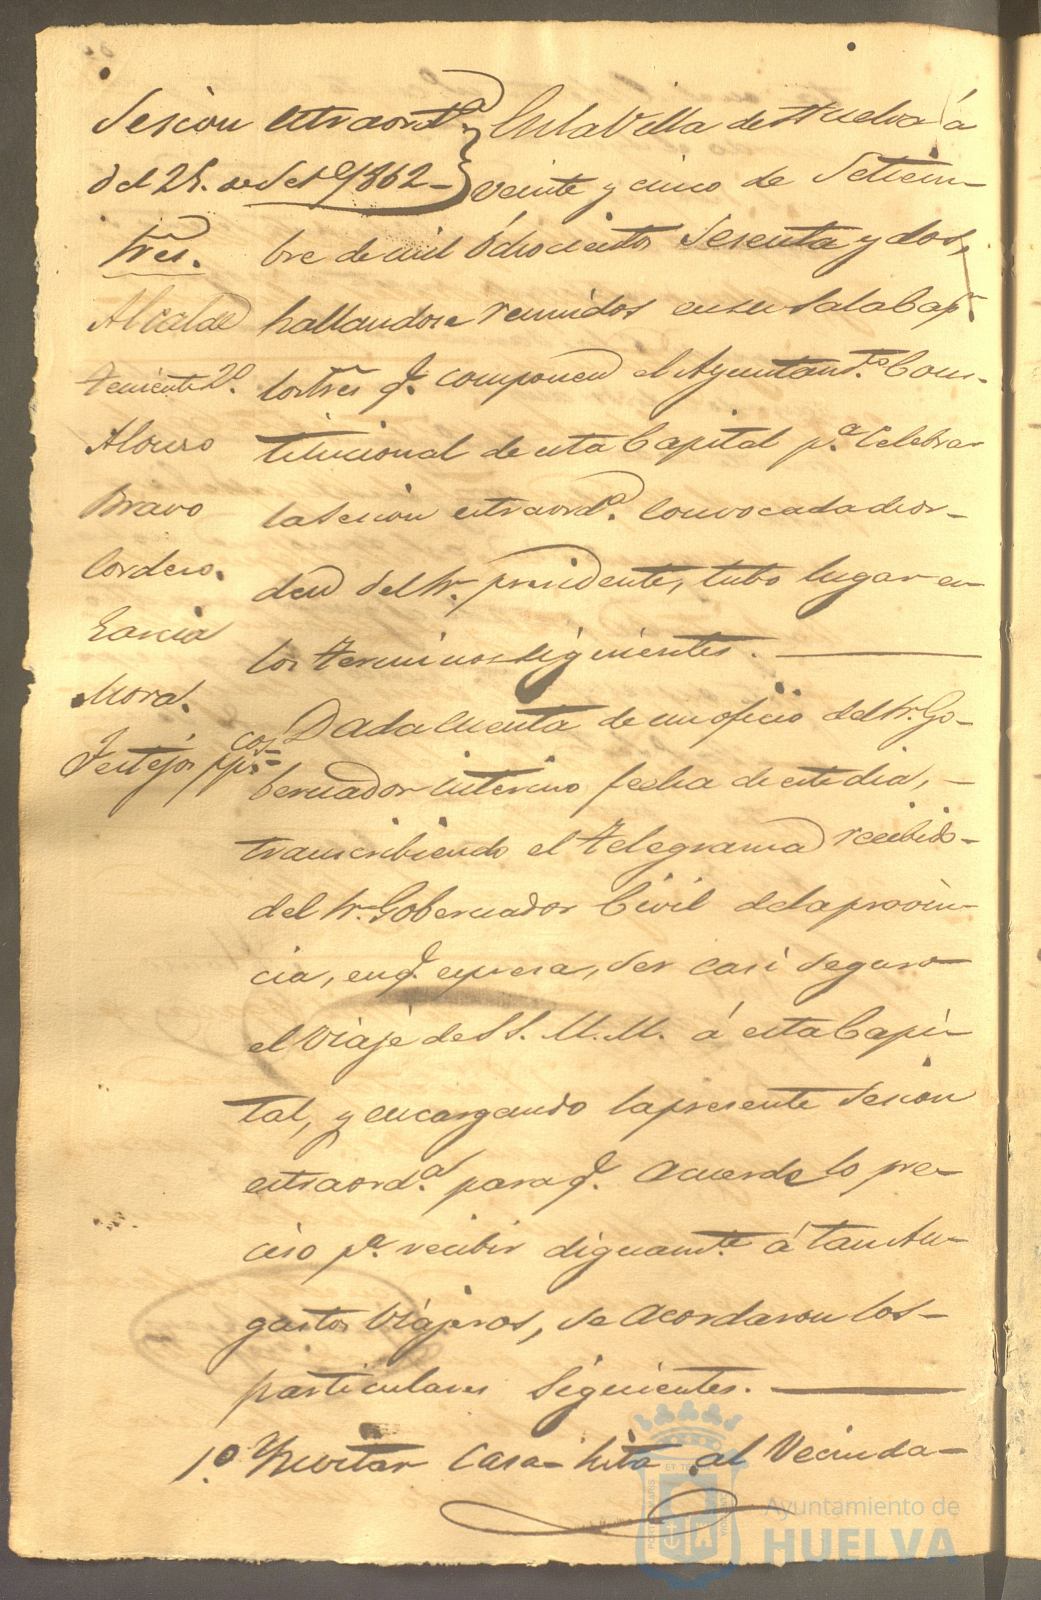 Sesion extraord.ª
del 25. de Set.e 1862
Sres.
Alcalde
Teniente 2º.
Alonso
Bravo
Cordero.
Garcia
Mora.
Festejos pp.cos
En la Villa de Huelva á
veinte y cinco de Setiem-
bre de mil ochocientos sesenta y dos,
hallandose reunidos en su Sala Cap.r
los Sres q.e componen el Ayuntam.to Cons-
titucional de esta Capital p.a celebrar
la sesion extraord.a convocada de or-
den del Sr. presidente, tubo lugar en
los terminos siguientes.
Dada cuenta de un oficio del Sr. Go-
bernador interino fecha de este dia,
transcribiendo el telegrama recibido
del Sr. Gobernador Civil de la provin-
cia, en q.e expresa, ser casi seguro
el viaje de SS. M.M. á esta Capi-
tal, y encargando la presente sesion
extraord.a para q.e acuerde lo pre-
ciso p.a recibir dignam.te á tan Au-
gustos viajeros, se acordaron los
particulares siguientes.
1.º Invitar casa-hita al Vecinda-
Ayuntamiento de
HUELVA